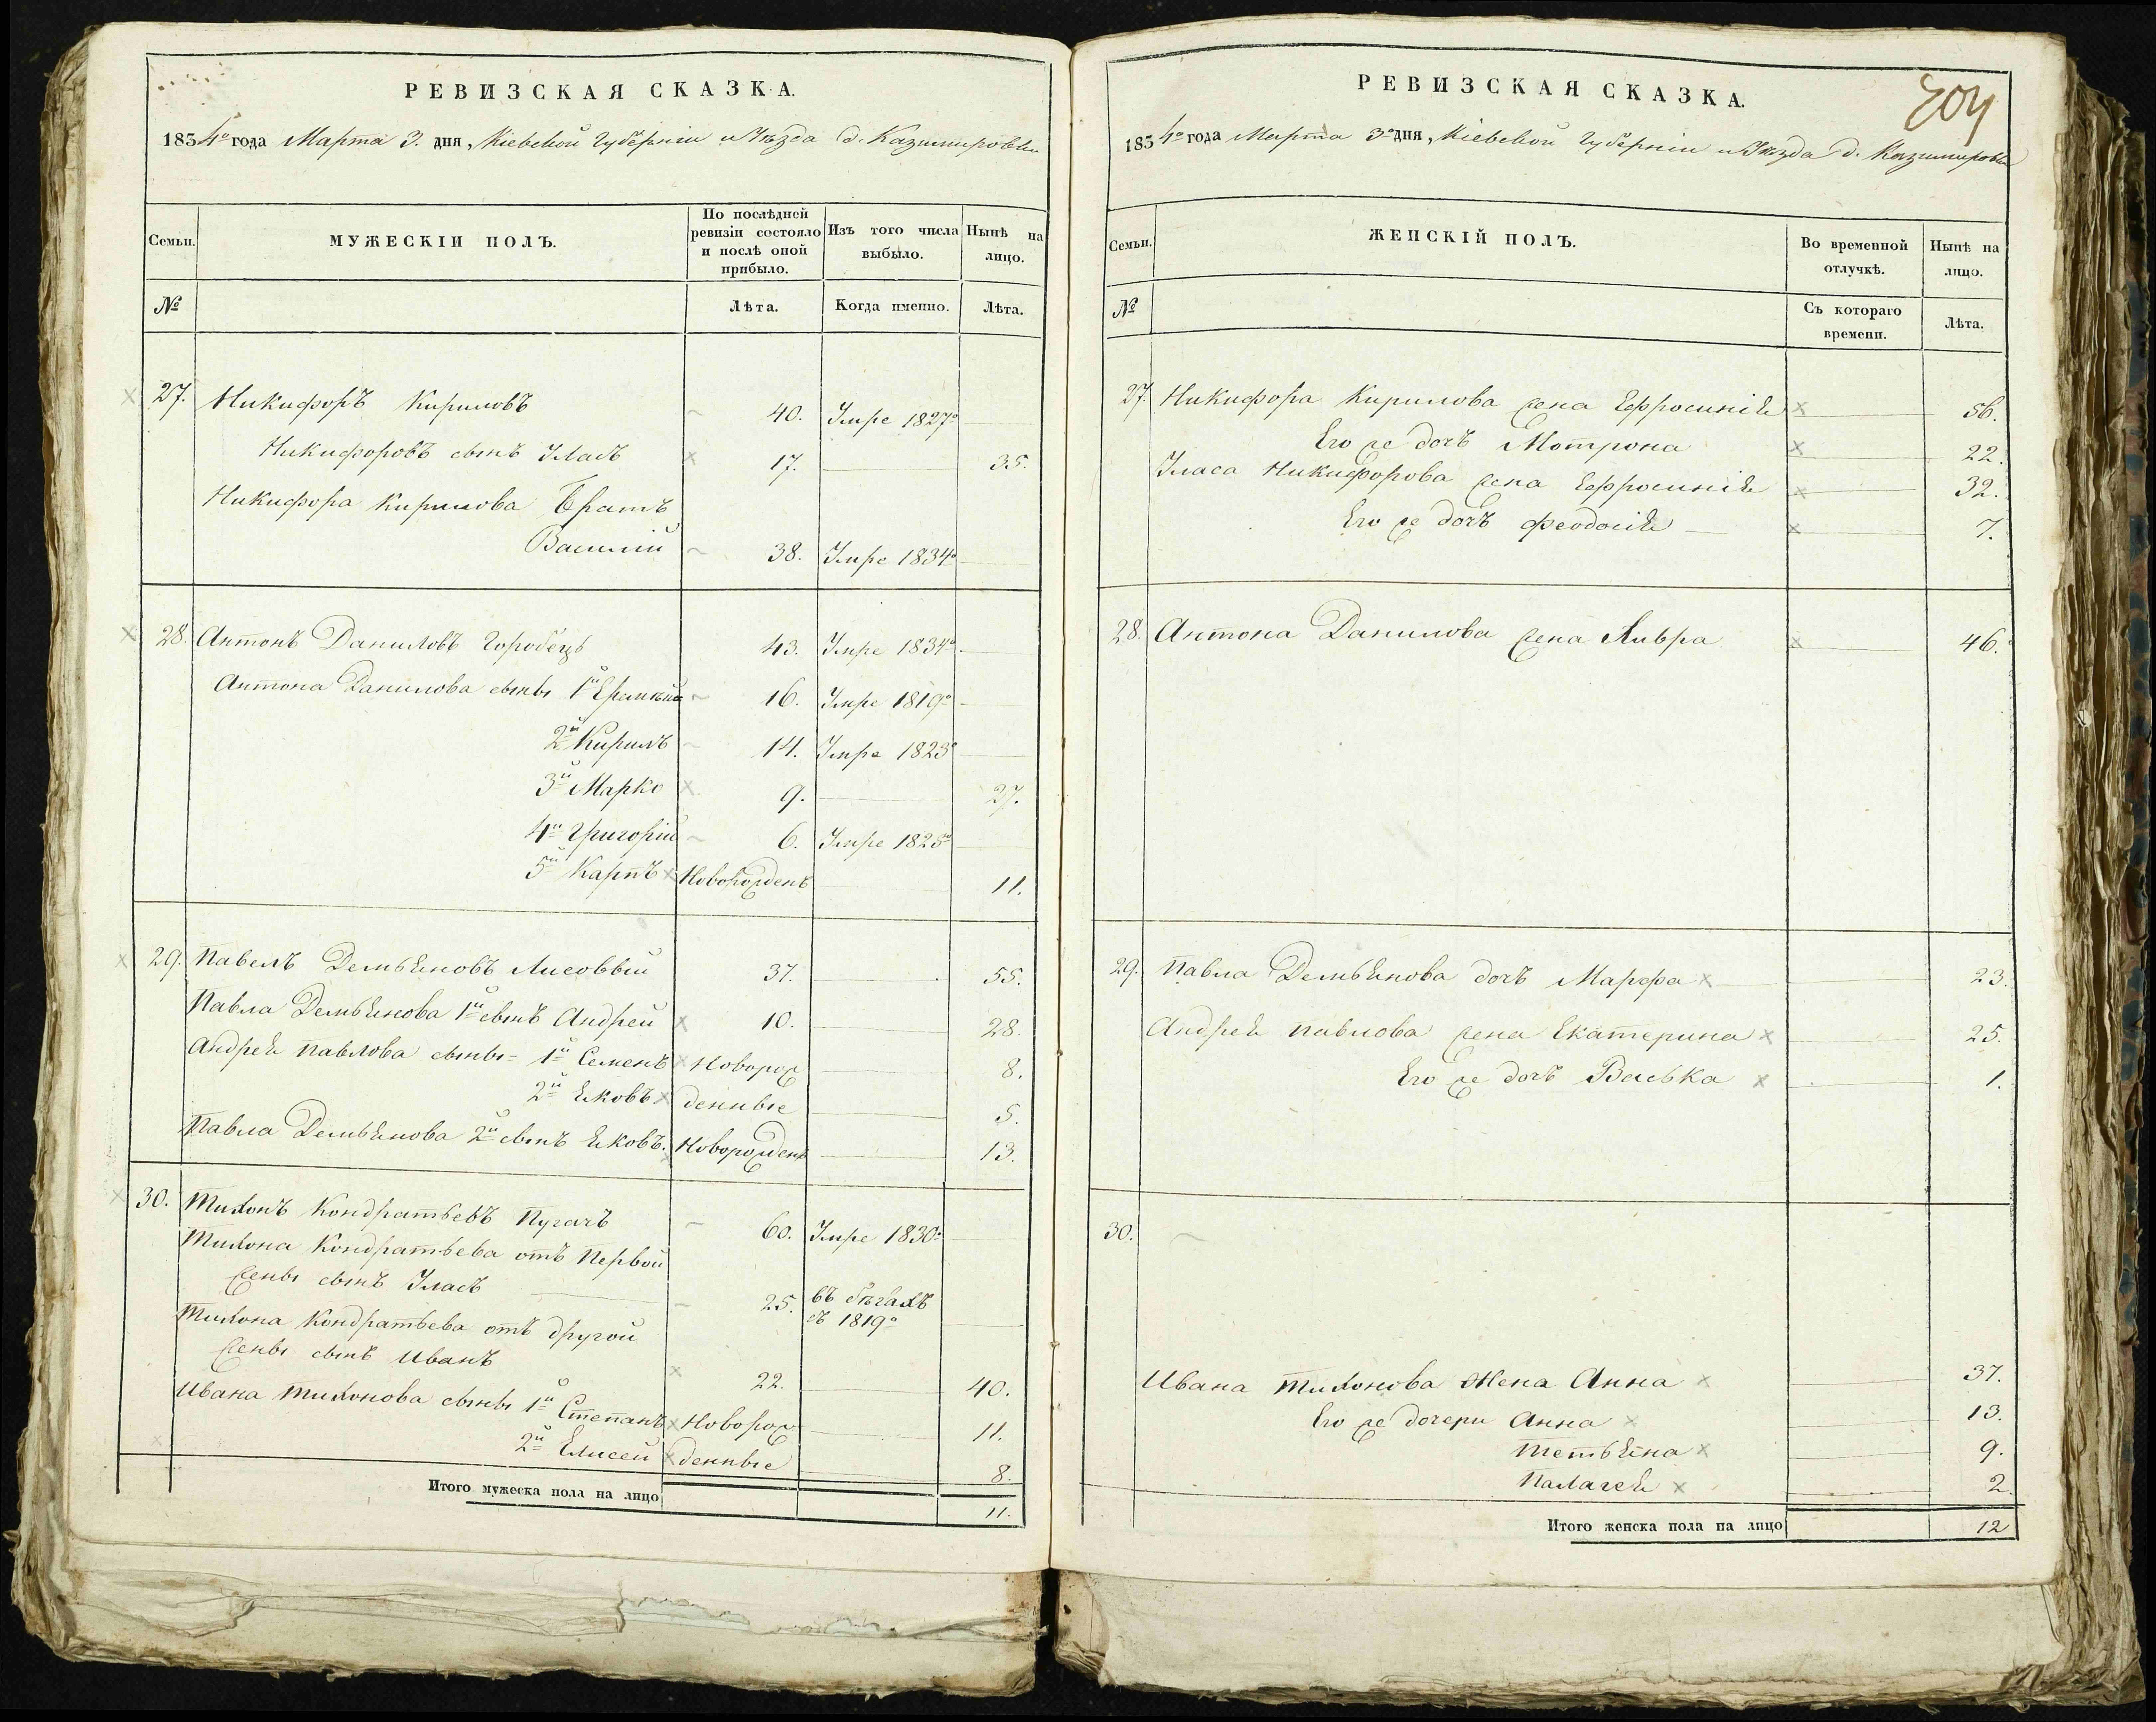 РЕВИЗСКАЯ СКАЗКА.
1834го года Марта 3. дня, Кіевской Губерніи и Уѣзда д. Казимировки
Семьи.
МУЖЕСКІИ ПОЛЪ.
По послѣдней ревизіи состояло и послѣ оной прибыло.
Изъ того числа выбыло.
Нынѣ на лицо.
№
Лѣта.
Когда именно.
Лѣта.
27. Никифоръ Кириловъ 40. Умре 1827го
Никифоровъ сынъ Уласъ 17. 35.
Никифора Кирилова Братъ
Василій 38. Умре 1834го
28. Антонъ Даниловъ Городецъ 43. Умре 1834го
Антона Данилова сыны 1й 16. Умре 1819го
2й Кирилъ 14. Умре 1823го
3й Марко 9. 27.
4й Григорій 6. Умре 1825го
5й Карпъ Новорожденъ 11.
29. Павелъ Демьяновъ Лисовый 37. 55.
Павла Демьянова 1й сынъ Андрей 10. 28.
Андрея Павлова сыны = 1й Семенъ Новорож 8.
2й Яковъ денные 5.
Павла Демьянова 2й сынъ Яковъ. Новорожден 13.
30. Тихонъ Кондратьевъ Пугачъ 60. Умре 1830го
Тихона Кондратьева отъ Первой
жены сынъ Уласъ 25. въ бѣгахъ
съ 1819го
Тихона Кондратьева отъ другой
жены сынъ Иванъ 22. 40.
Ивана Тихонова сыны 1й Степанъ Новорож 11.
2й Елисей денные 8.
Итого мужеска пола на лицо 11.
204
РЕВИЗСКАЯ СКАЗКА.
1834го года Марта 3го дня, Кіевской Губерніи и Уѣзда д. Казимировки
Семьи.
ЖЕНСКІЙ ПОЛЪ.
Во временной отлучкѣ.
Нынѣ на лицо.
№
Съ котораго времени.
Лѣта.
27. Никифора Кирилова жена Ефросинія 56.
Его же дочь Мотрона 22.
Уласа Никифорова жена Ефросинія 32.
Его же дочъ Феодосія 7.
28. Антона Данилова жена 46.
29. Павла Демьянова дочъ Марфа 23.
Андрея Павлова жена Екатерина 25.
Его же дочъ Васька 1.
30.
Ивана Тихонова Жена Анна 37.
Его же дочери Анна 13.
Тетьяна 9.
Палагея 2.
Итого женска пола на лицо 12